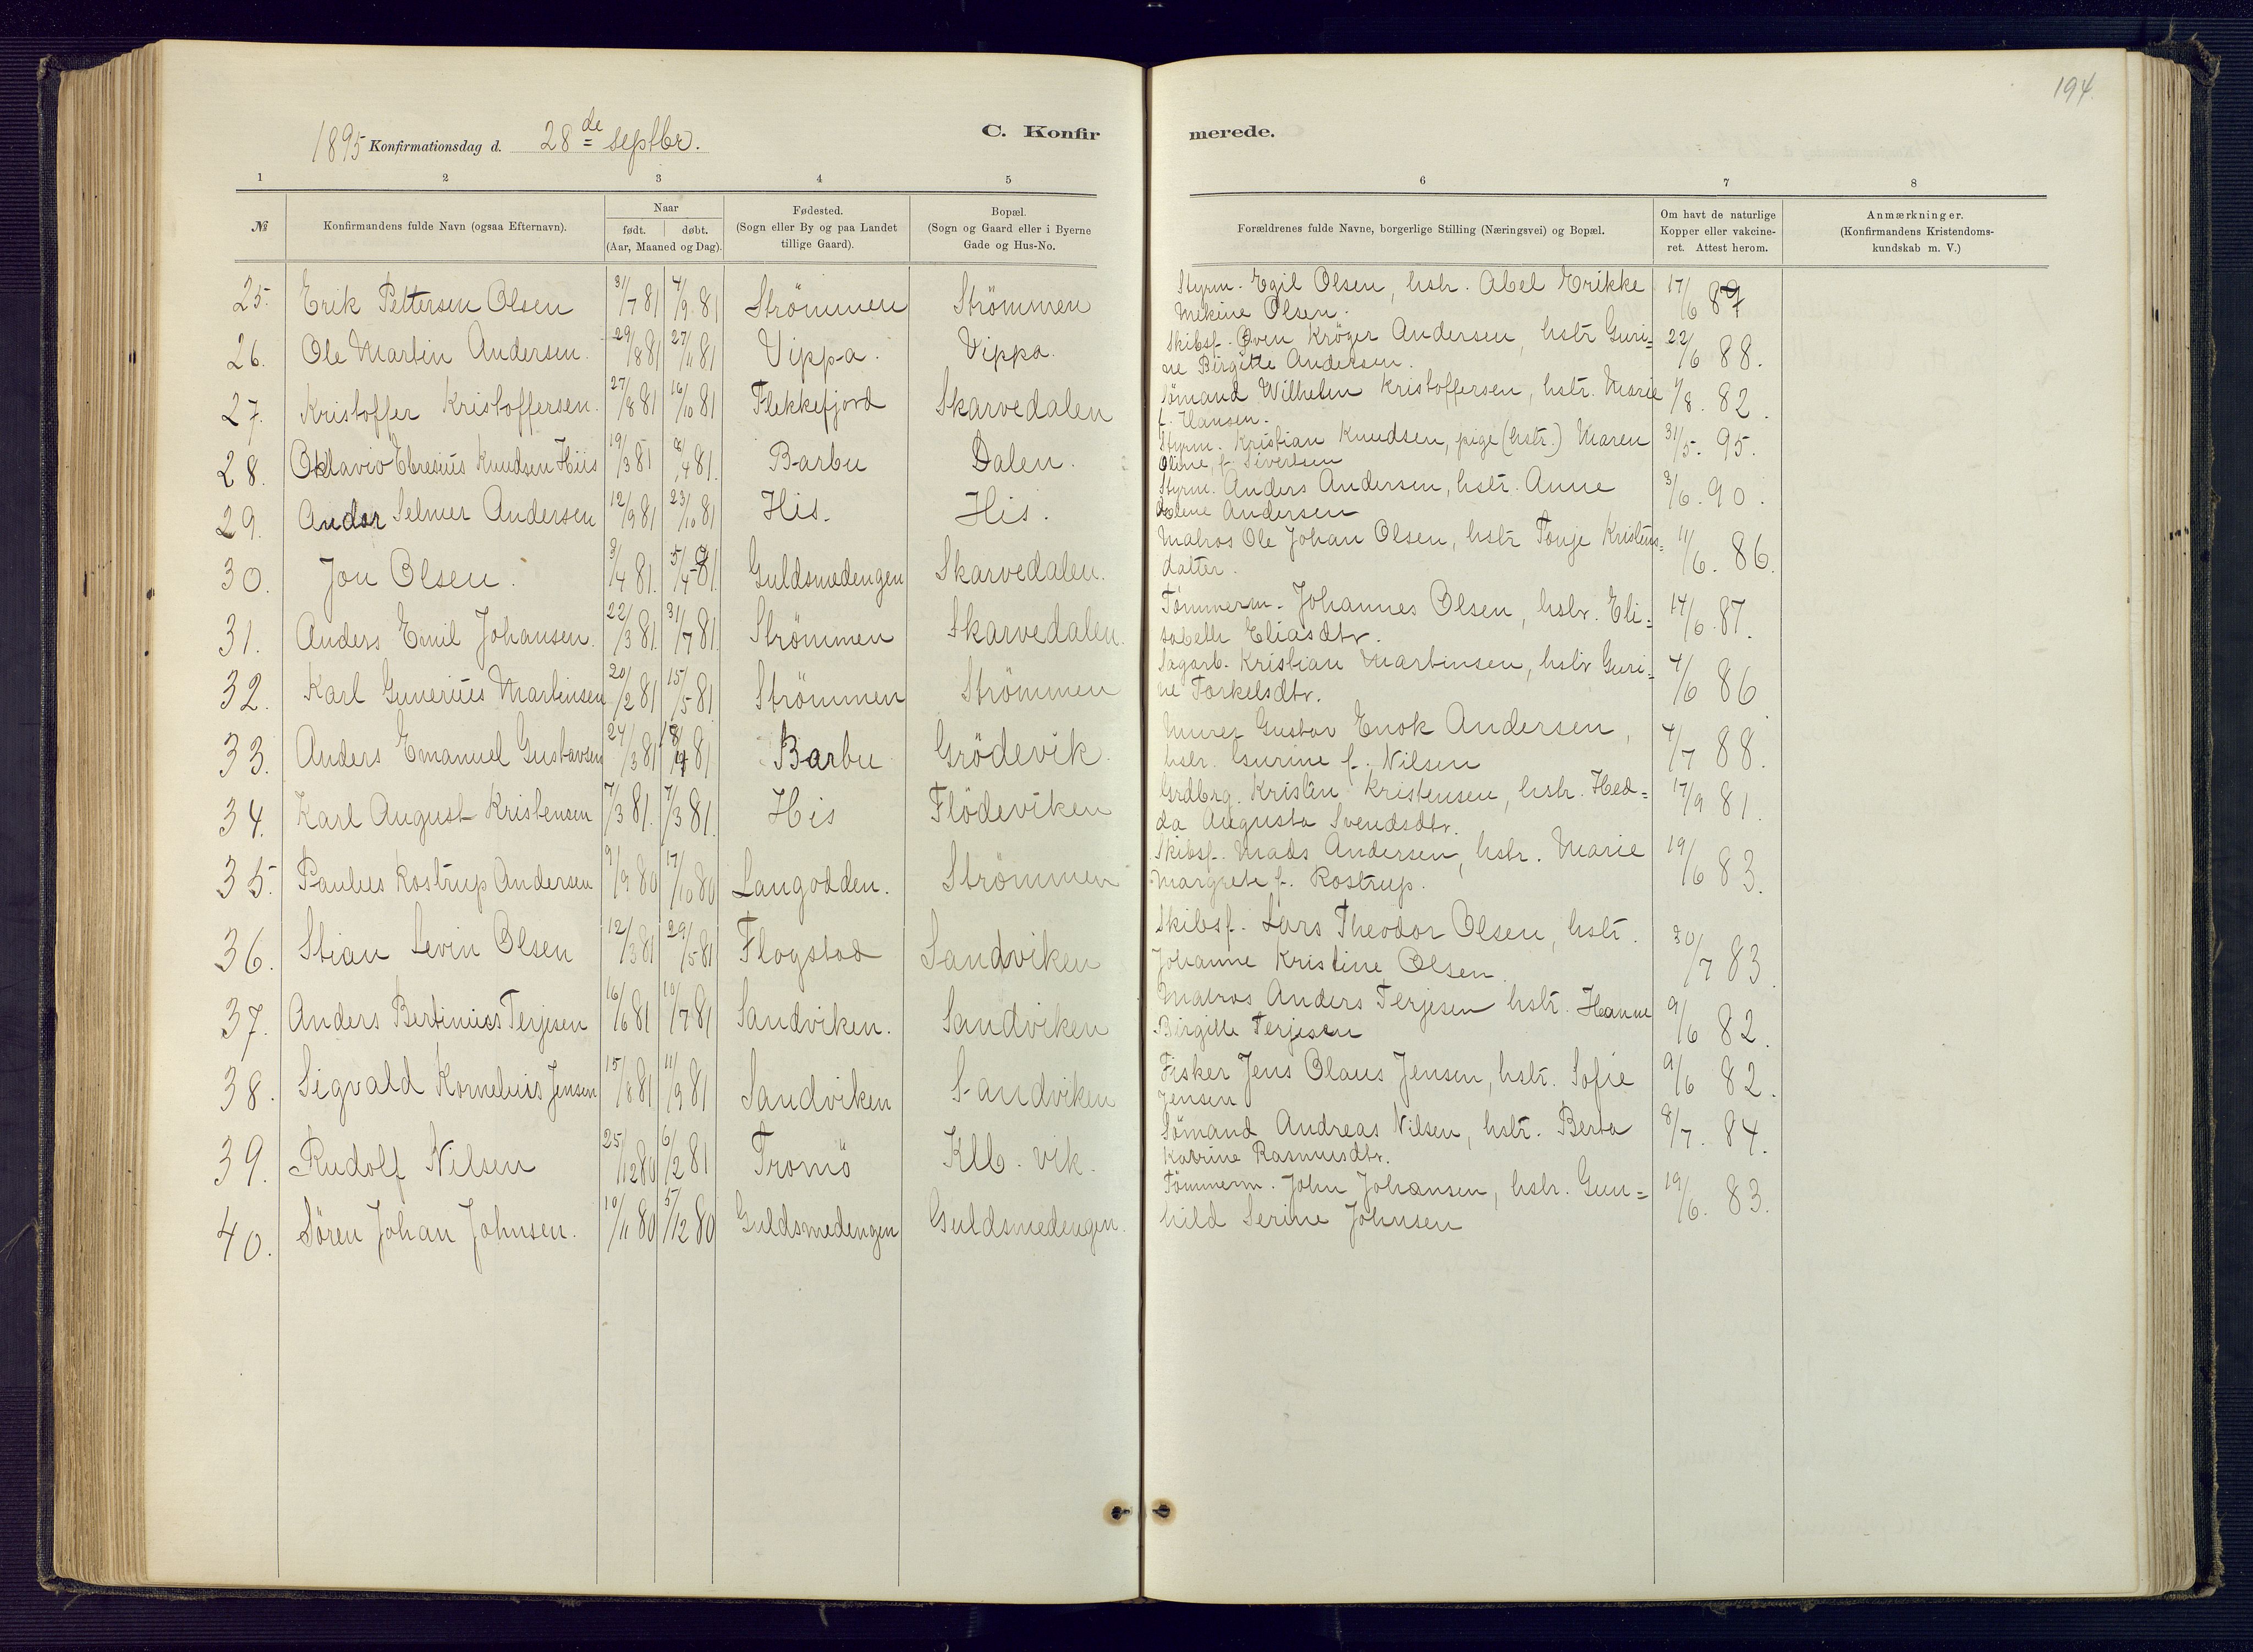 194.
1895 Konfirmationsdag d. 28de septbr. C. Konfir merede.
1 2 3 4 5 6 7 8
№ Konfirmandens fulde Navn (ogsaa Efternavn). Naar født. døbt. (Aar, Maaned og Dag). Fødested. (Sogn eller By og paa Landet tillige Gaard). Bopæl. (Sogn og Gaard eller i Byerne Gade og Hus-No. Forældrenes fulde Navne, borgerlige Stilling (Næringsvei) og Bopæl. Om havt de naturlige Kopper eller vakcineret. Attest herom. Anmærkninger. (Konfirmandens Kristendomskundskab m. V.)
25. Erik Pettersen Olsen 31/7 81 4/9 81 Strömmen Strömmen Styrm. Egil Olsen, hstr. Abel Erikke 17/6 87
Mekine Olsen.
26. Ole Martin Andersen. 29/8 81 27/11 81 Vippa. Vippa. Skibsf. Oven Kröger Andersen, hstr Guri= 22/6 88.
ne Birgitte Andersen.
27. Kristoffer Kristoffersen. 27/8 81 16/10 81 Flekkefjord Skarvedalen Sömand Wilhelm Kristoffersen, hstr. Marie /8. 82.
f. Hansen.
28. Oktavio Ebresius Knudsen Hiis 19/3 81 /4 81. Barbu Dalen. Styrm. Kristian Knudsen, pige (hstr.) Maren 31/5. 95.
Oline, f. Sivertsen
29. Andor Selmer Andersen 12/9 81 23/10 81 His. His. Styrm. Anders Andersen, hstr. Anne 3/6. 90.
Andersen
30. Jon Olsen. 3/4 81. 5/4 81. Guldsmedengen Skarvedalen. Matros Ole Johan Olsen, hstr Tonje Kristens= 11/6. 86.
datter.
31. Anders Emil Johansen. 22/3 81. 31/7 81. Strömmen Skarvedalen. Tömmerm. Johannes Olsen, hstr. Eli= 14/6. 87.
sabeth Eliasdtr.
32. Karl Gunerius Martinsen 20/2 81 15/5 81 Strömmen Strömmen Sagarb. Kristian Martinsen, hstr Guri= 4/6 86.
ne Torkelsdtr.
33. Anders Emanuel Gustavsen 24/3 81 18/4 81 Barbu Grödevik. Murer Gustav Enok Andersen, 4/7 88.
hstr. Gurine f. Nilsen
34. Karl August Kristensen 7/3 81. 7/3 81. His Flödeviken Grdbrg. Kristen Kristensen, hstr. Hed= 17/9 81.
da Augusta Svendsdtr.
35. Paulus Kostrup Andersen 9/9 80 17/10 80 Langodden. Strömmen Skibsf. Mads Andersen, hstr. Marie 19/6 83.
Margrete f. Rostrup.
36. Stian Levin Olsen 12/3 81 29/5 81 Flogstad Sandviken Skibsf. Lars Theodor Olsen, hstr. 30/7 83.
Johanne Kristine Olsen.
37. Anders Bertinius Terjesen 16/6 81 10/7 81 Sandviken. Sandviken Matros Anders Terjesen hstr. Hanne 9/6 82.
Birgitte Terjesen
38. Sigvald Kornelius Jensen 15/8 81 11/9 81 Sandviken Sandviken Fisker Jens Olaus Jensen, hstr. Sofie 9/6 82.
Jensen
39. Rudolf Nilsen 25/12 80 6/2 81 Tromö Klb. vik. Sömand Andreas Nilsen, hstr. Berta 8/7. 84.
Katrine Rasmusdtr.
40. Sören Johan Johnsen. 10/11 80 5/12 80 Guldsmedengen Guldsmedengen. Tömmerm. John Johansen, hstr. Gun= 19/6. 83.
hild Serine Johnsen